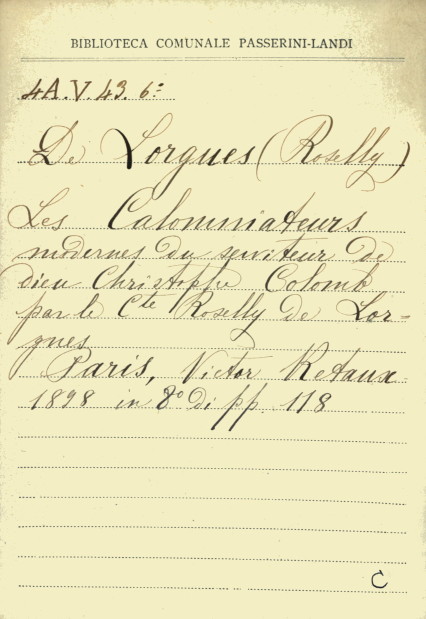 BIBLIOTECA COMUNALE PASSERINI-LANDI
4A.V.43.6:
De Lorgues (Roselly)
Les Calomniateurs
modernes du serviteur de
dieu Christophe Colomb
par le Cte Roselly de Lor-
gues
Paris, Victor Retaux
1898 in 8º di pp 118
C